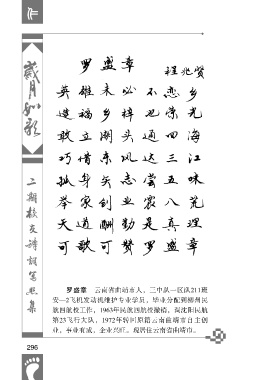 岁月如歌
二期校友诗词笔会集
罗盛章
程兆贤
英雄未必不恋乡
造福乡梓也荣光
敢立潮头通四海
巧借东风达三江
孤身矢志尝五味
举家创业震八荒
天道酬勤是真理
可歌可赞罗盛章
罗盛章 云南省曲靖市人,三中队一区队211班
安—2飞机发动机维护专业学员,毕业分配到柳州民
航四航校工作,1963年民航四航校撤销,调沈阳民航
第23飞行大队,1972年转回原籍云南曲靖市自主创
业,事业有成,企业兴旺。现居住云南省曲靖市。
296